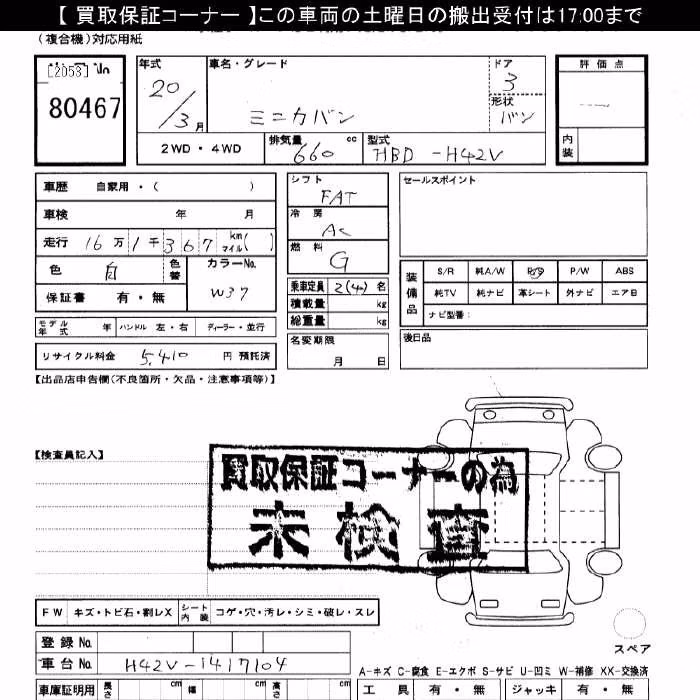 【 買取保証コーナー 】この車両の土曜日の搬出受付は17:00まで
(複合機)対応用紙
[2053]
80467
年式 20/3月
車名・グレード
ミニカバン
ドア 3
形状 バン
2WD・4WD
排気量 660 cc
型式 HBD-H42V
評価点
内装
車歴 自家用・( )
車検 年 月
走行 16万1千367 km マイル( )
色 白 色替
カラーNo. W37
保証書 有・無
モデル年式 年 ハンドル 左・右 ディーラー・並行
リサイクル料金 5,410 円 預託済
シフト FAT
冷房 AC
燃料 G
乗車定員 2(4) 名
積載量 kg
総重量 kg
名変期限 月 日
セールスポイント
装備品
S/R 純A/W P/S P/W ABS
純TV 純ナビ 革シート 外ナビ エアB
ナビ型番:
後日品
【出品店申告欄(不良箇所・欠品・注意事項等)】
【検査員記入】
買取保証コーナーの為
未検査
FW キズ・トビ石・割レX シート内装 コゲ・穴・汚レ・シミ・破レ・スレ
スペア
登録No.
車台No. H42V-1417104
A-キズ C-腐食 E-エクボ S-サビ U-凹ミ W-補修 XX-交換済
車庫証明用 長さ cm 幅 cm 高さ cm
工具 有・無 ジャッキ 有・無